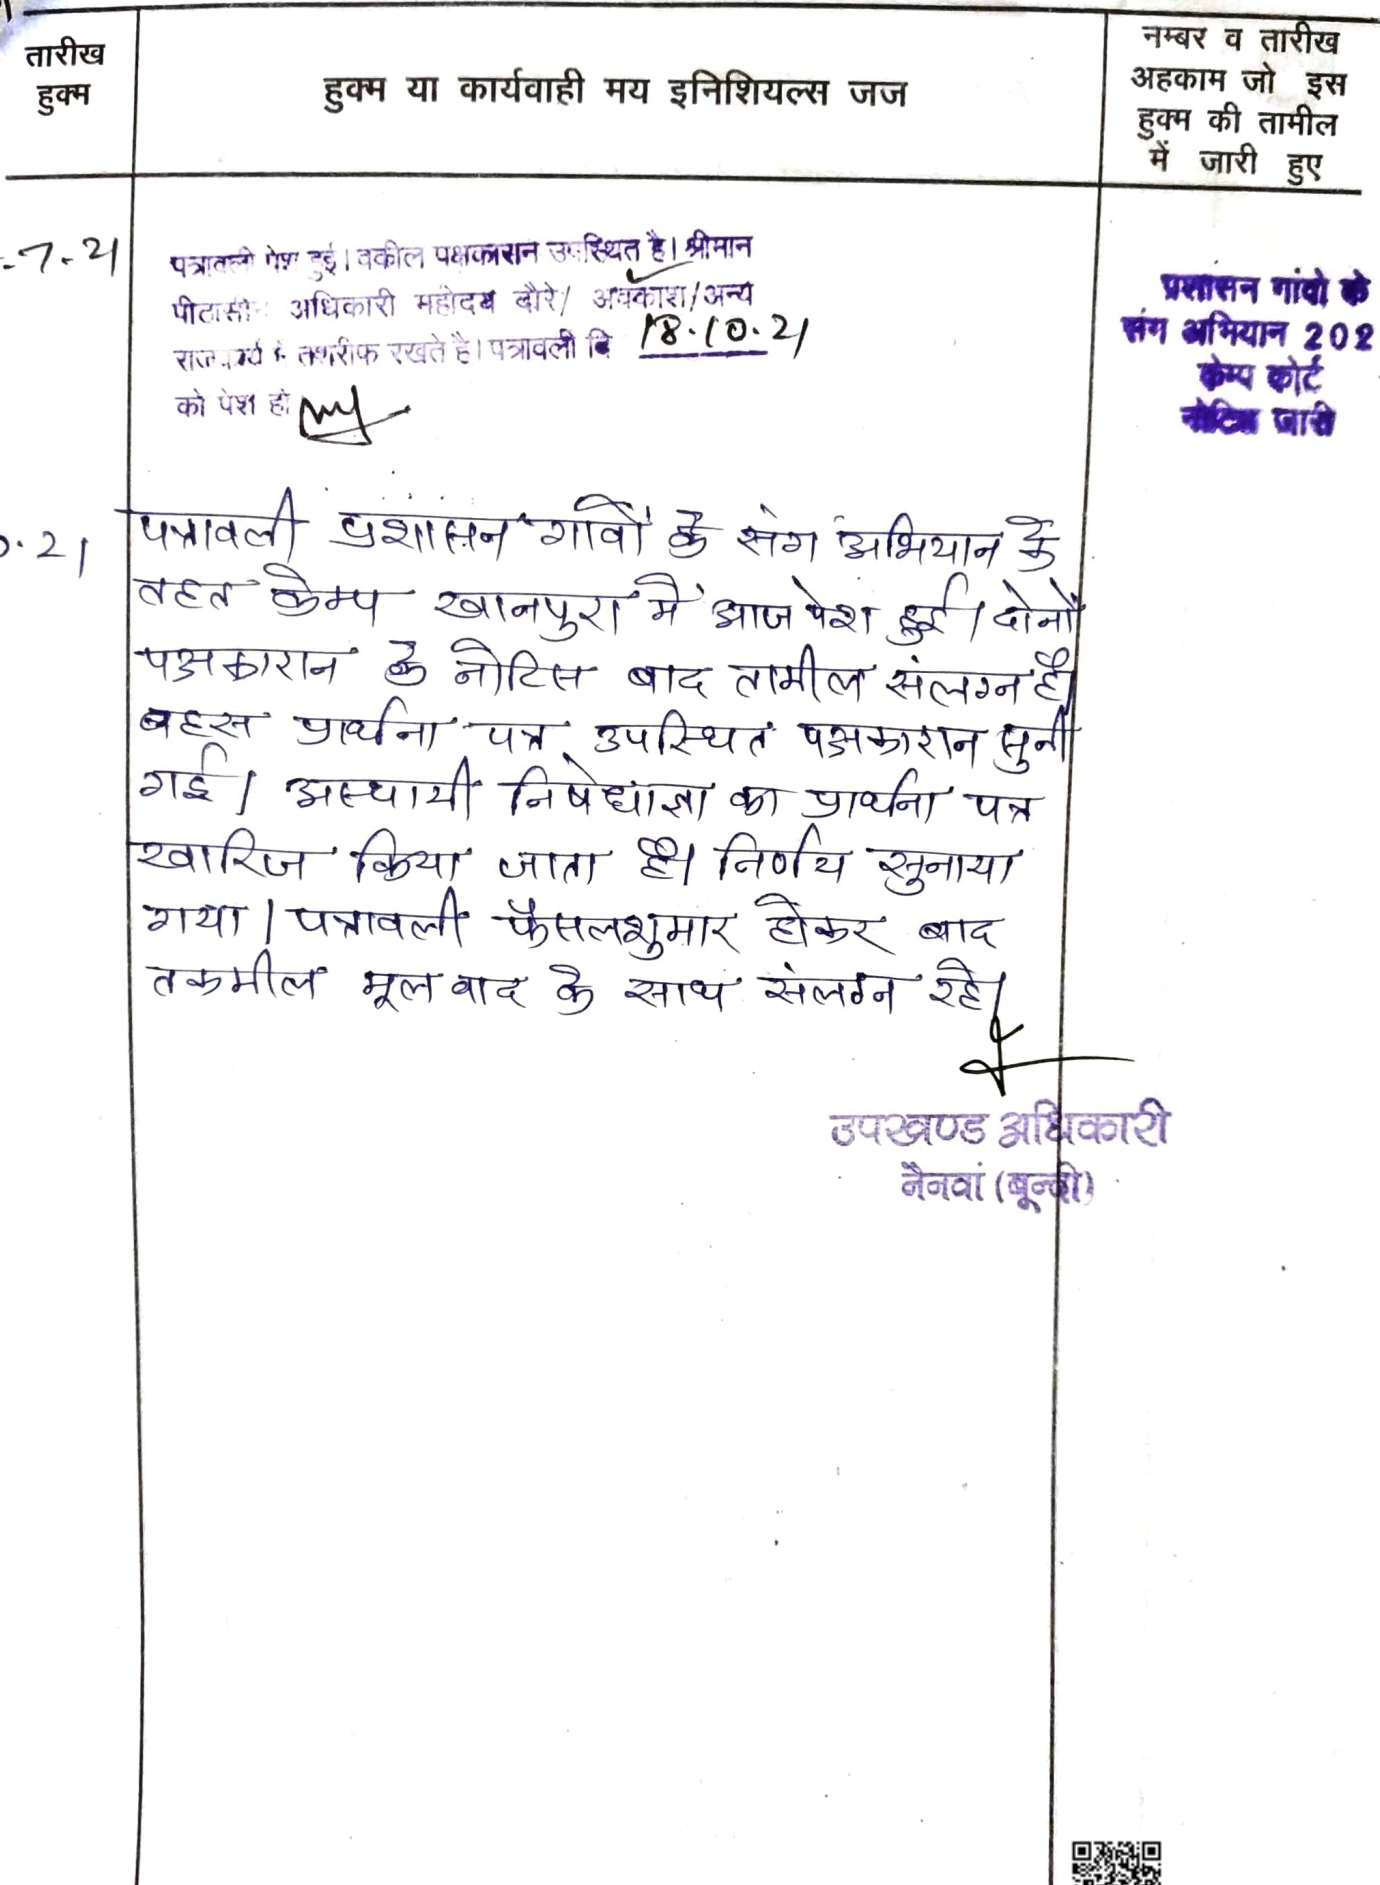 तारीख
हुक्म
हुक्म या कार्यवाही मय इनिशियल्स जज
नम्बर व तारीख
अहकाम जो इस
हुक्म की तामील
में जारी हुए
-7-21
पत्रावली पेश हुई। वकील पक्षकारान उपस्थित है। श्रीमान
पीठासीन अधिकारी महोदय दौरे/ अवकाश/अन्य
तशरीफ रखते है। पत्रावली दि 18.10.21
को पेश हो
प्रशासन गांवो के
संग अभियान 202
केम्प कोर्ट
नोटिस जारी
.21
पत्रावली प्रशासन गांवों के संग अभियान के
तहत केम्प खानपुरा में आज पेश हुई। दोनों
पक्षकारान के नोटिस बाद तामील संलग्न है।
बहस प्रार्थना पत्र उपस्थित पक्षकारान सुनी
गई। अस्थायी निषेधाज्ञा का प्रार्थना पत्र
खारिज किया जाता है। निर्णय सुनाया
गया। पत्रावली फैसलशुमार होकर बाद
तकमील मूल वाद के साथ संलग्न रहे।
उपखण्ड अधिकारी
नैनवां (बून्दी)